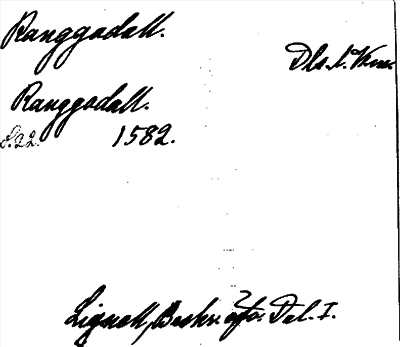 Ranggodall.
Dls. l. Kom.
Ranggodall.
S. 22. 1582.
Lignell, Beskr. öfv. Dal. I.